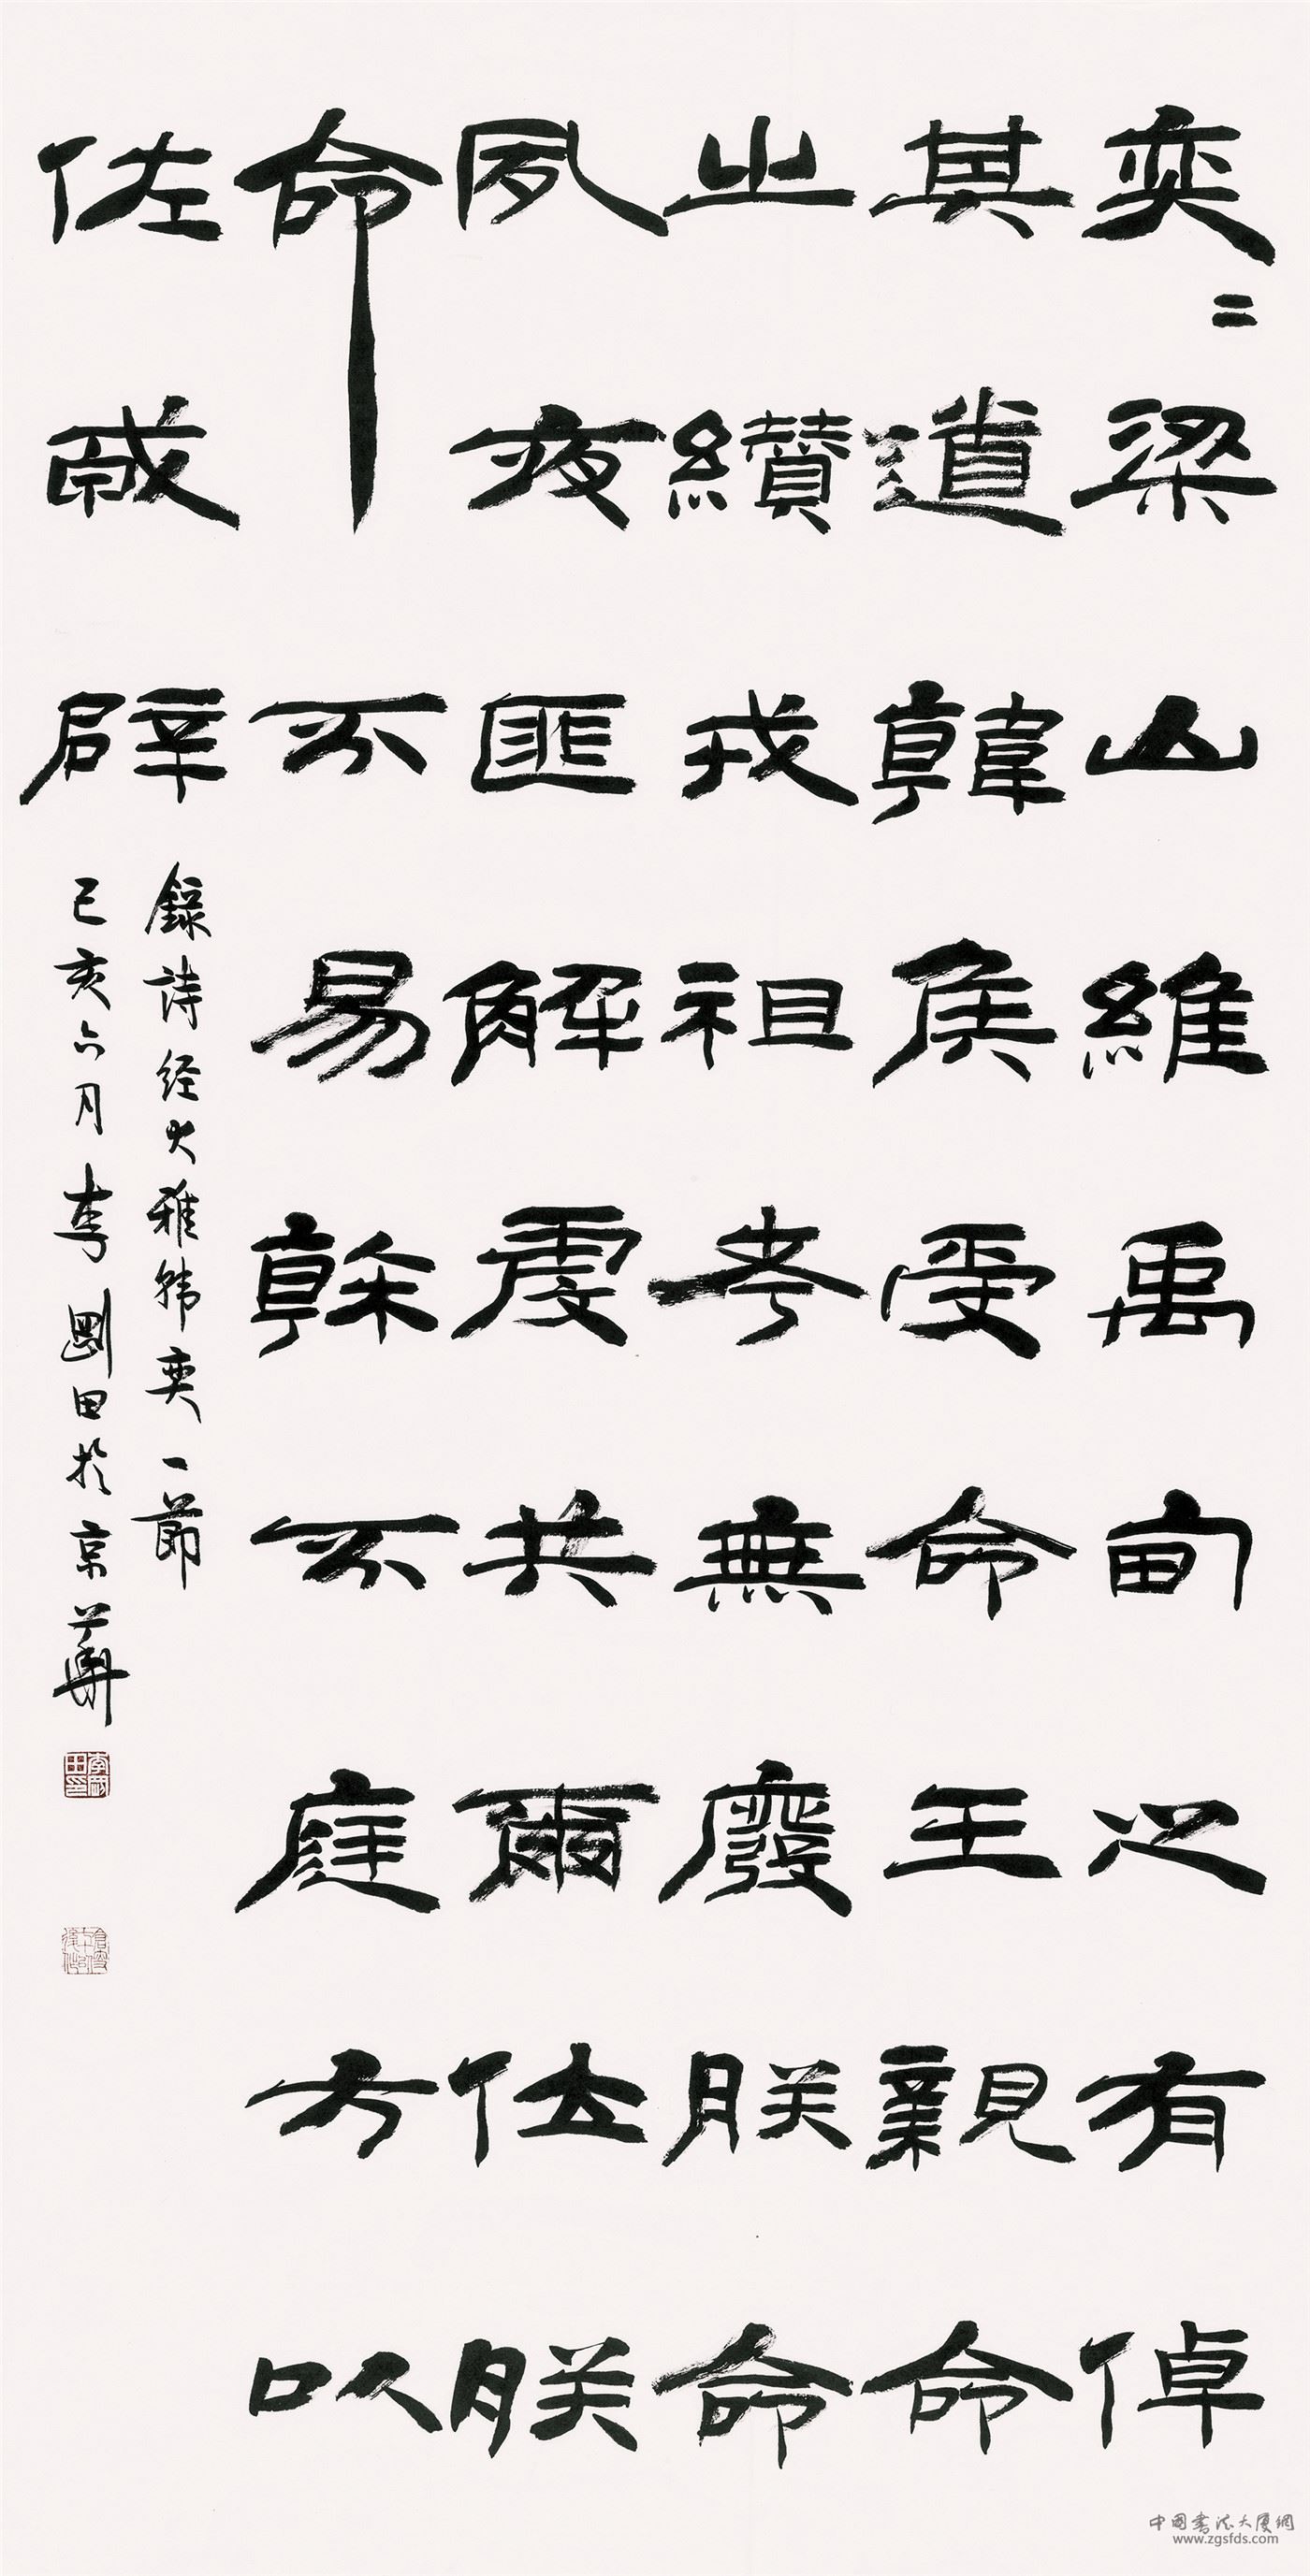 奕二梁山維禹甸之有倬
其道韓侯受命王親命
之纘戎祖考無廢朕命
夙夜匪解虔共爾位朕
命不易榦不庭方以
佐戎辟
錄詩经大雅韓奕一節
己亥六月李剛田於京華
李剛田印
中國書法大廈網
www.zgsfds.com